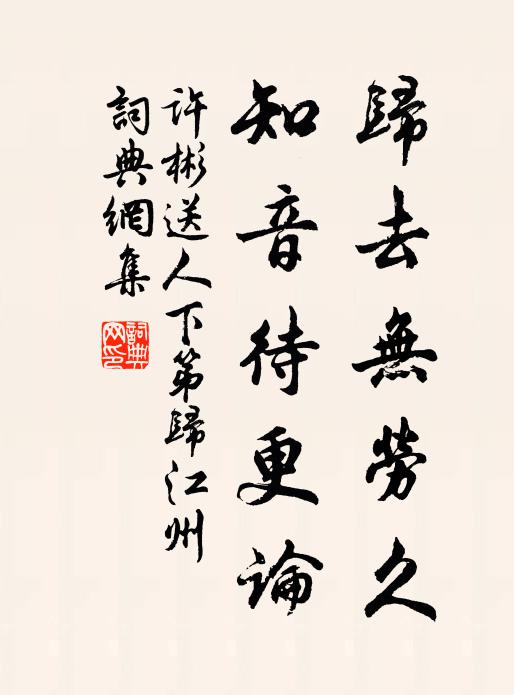 歸去無勞久
知音待更論
許彬送人下第歸江州
詞典網集
詞典網印